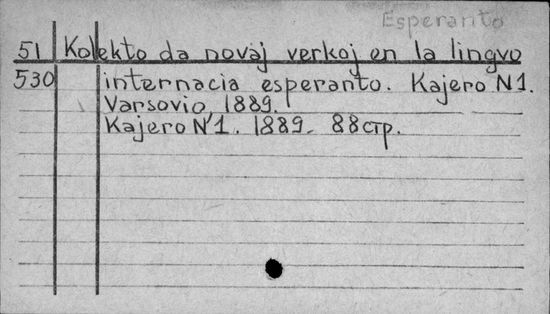 Esperanto
51 Kolekto da novaj verkoj en la lingvo
530 internacia esperanto. Kajero N1.
Varsovio, 1889.
Kajero N1. 1889. 88стр.